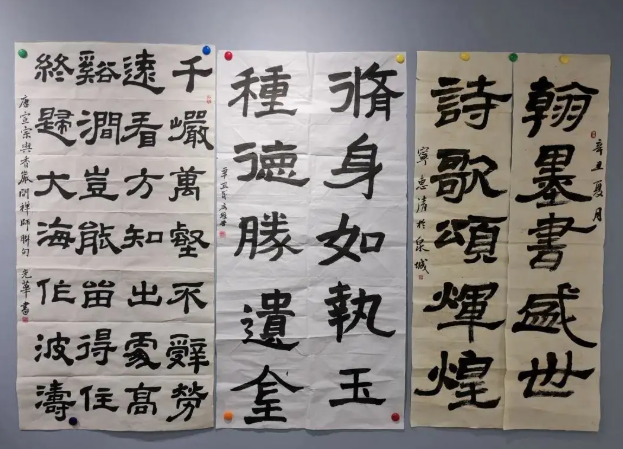 辛丑夏月
翰墨書盛世
詩歌頌煇煌
寧惠清於泉城
脩身如執玉
種德勝遺金
千巖萬壑不辭勞
遠看方知出處高
谿澗豈能留得住
終歸大海作波濤
唐宣宗與香嚴閑禪師聯句 光華書